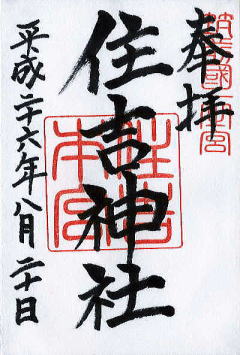 奉拝
住吉神社
住吉
本宮
平成二十六年八月二十日